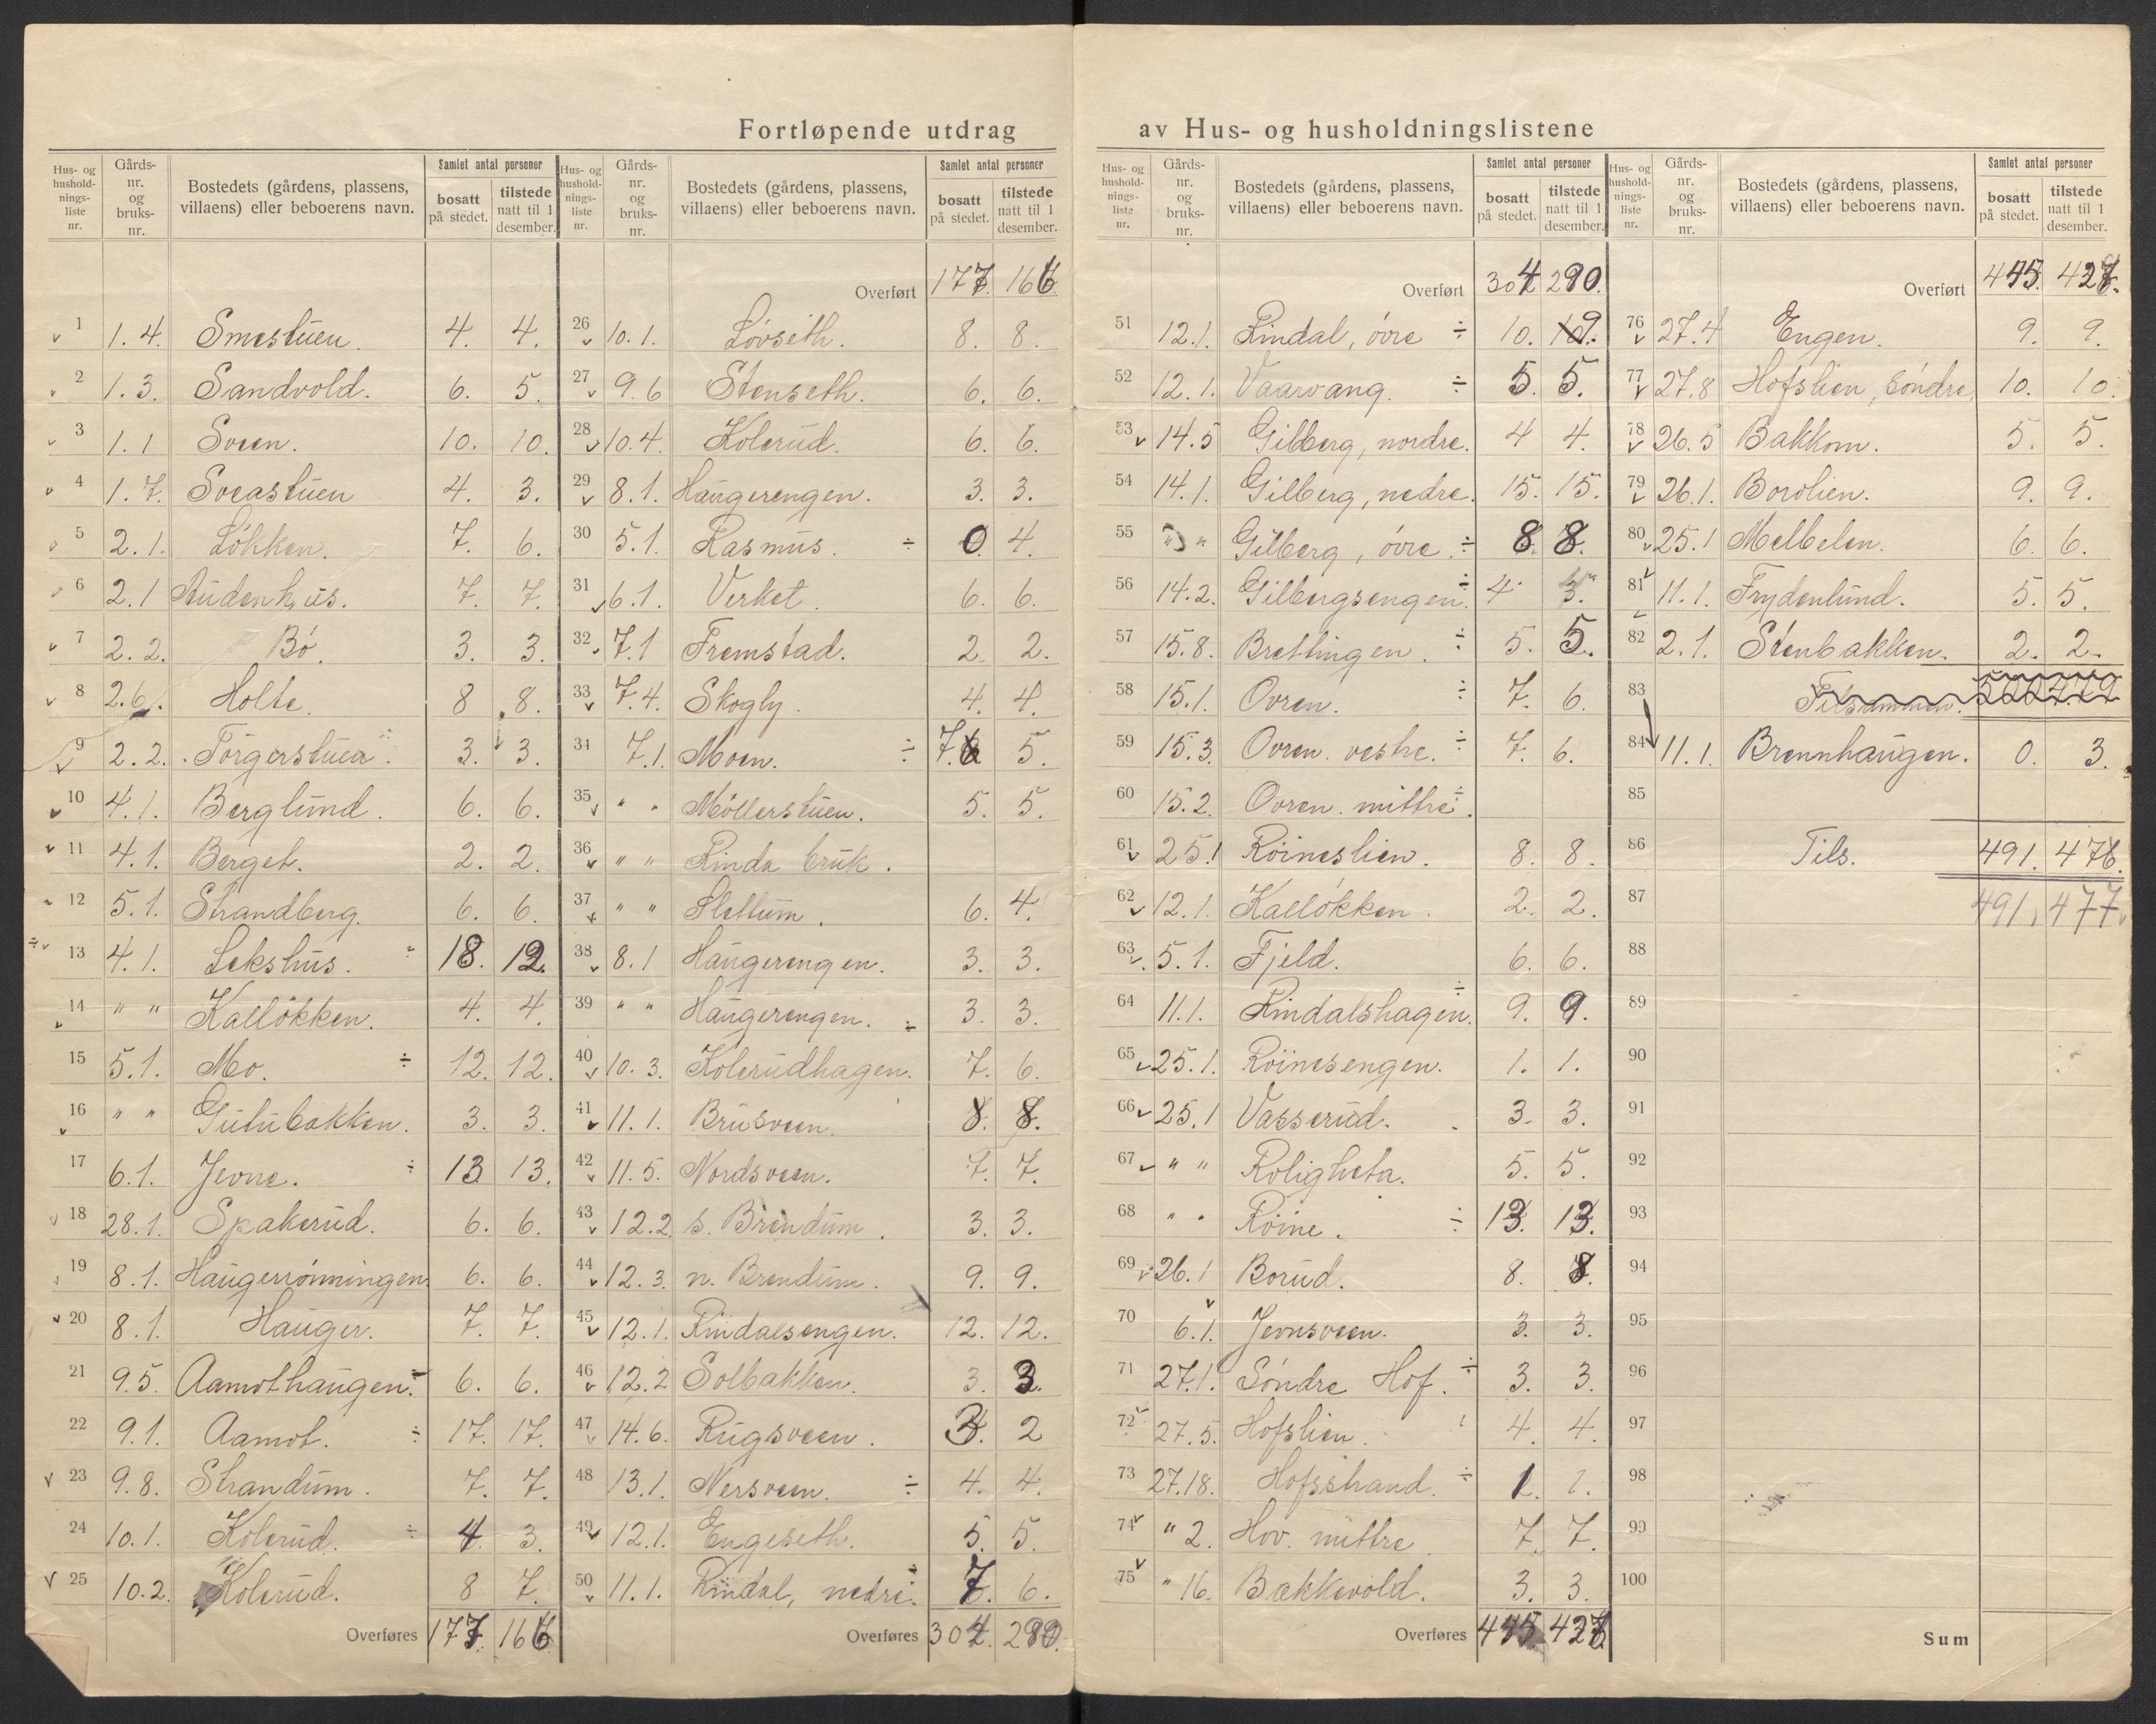 Fortløpende utdrag av Hus- og husholdningslistene
Hus- og hushold-nings-liste nr. | Gårds-nr. og bruks-nr. | Bostedets (gårdens, plassens, villaens) eller beboerens navn. | Samlet antal personer | bosatt på stedet. | tilstede natt til 1 desember.
1 | 1.4. | Smestuen. | 4. | 4.
2 | 1.3. | Sandvold. | 6. | 5.
3 | 1.1 | Sveen. | 10. | 10.
4 | 1.7. | Sveastuen | 4. | 3.
5 | 2.1. | Løkken. | 7. | 6.
6 | 2.1 | Audenhus. | 7. | 7.
7 | 2.2. | Bö. | 3. | 3.
8 | 2.6. | Holte. | 8 | 8.
9 | 2.2. | Torgerstuen. | 3. | 3.
10 | 4.1. | Berglund. | 6. | 6.
11 | 4.1. | Berget. | 2. | 2.
12 | 5.1. | Strandberg. | 6. | 6.
13 | 4.1. | Lekshus. ÷ | 18. | 12.
14 | " " | Kalløkken. | 4. | 4.
15 | 5.1. | Mo. ÷ | 12. | 12.
16 | " " | Gulubakken. | 3. | 3.
17 | 6.1. | Jevne. ÷ | 13 | 13.
18 | 28.1. | Spakerud. | 6. | 6.
19 | 8.1. | Haugerrönningen | 6. | 6.
20 | 8.1. | Hauger. | 7. | 7.
21 | 9.5. | Aamothaugen. ÷ | 6. | 6.
22 | 9.1. | Aamot. ÷ | 17. | 17.
23 | 9.8. | Strandum. | 7. | 7.
24 | 10.1. | Kolerud. ÷ | 4. | 3.
25 | 10.2. | Kolerud. | 8 | 7.
Overføres 177. 166
Hus- og hushold-nings-liste nr. | Gårds-nr. og bruks-nr. | Bostedets (gårdens, plassens, villaens) eller beboerens navn. | Samlet antal personer | bosatt på stedet. | tilstede natt til 1 desember.
Overført 177. 166
26 | 10.1. | Lövseth. | 8. | 8.
27 | 9.6 | Stenseth. | 6. | 6.
28 | 10.4. | Kolerud. | 6. | 6.
29 | 8.1. | Haugerengen. | 3. | 3.
30 | 5.1. | Rasmus. ÷ | 0 | 4.
31 | 6.1. | Verket. | 6. | 6.
32 | 7.1 | Fremstad. | 2. | 2.
33 | 7.4. | Skogly. | 4. | 4.
34 | 7.1. | Moen. ÷ | 7. | 5.
35 | " " | Möllerstuen. | 5. | 5.
36 | " " | Rinda bruk.
37 | " " | Slettum. | 6. | 4.
38 | 8.1 | Haugerengen. | 3. | 3.
39 | " " | Haugerengen. ÷ | 3. | 3.
40 | 10.3. | Kolerudhagen. | 7. | 6.
41 | 11.1. | Brusveen. | 8. | 8.
42 | 11.5. | Nordsveen. | 7. | 7.
43 | 12.2. | s. Brendum. | 3. | 3.
44 | 12.3. | n. Brendum. | 9. | 9.
45 | 12.1. | Rindalsengen. | 12. | 12.
46 | 12.2 | Solbakken. | 3. | 3.
47 | 14.6. | Rugsveen. | 3. | 2
48 | 13.1. | Nersveen. ÷ | 4. | 4.
49 | 12.1. | Engeseth. | 5. | 5.
50 | 11.1. | Rindal, nedre. ÷ | 7. | 6.
Overføres 304. 290.
Hus- og hushold-nings-liste nr. | Gårds-nr. og bruks-nr. | Bostedets (gårdens, plassens, villaens) eller beboerens navn. | Samlet antal personer | bosatt på stedet. | tilstede natt til 1 desember.
Overført 304 290.
51 | 12.1. | Rindal, övre ÷ | 10. | 9.
52 | 12.1. | Vaarvang. ÷ | 5. | 5.
53 | 14.5 | Gilberg, nordre. | 4 | 4.
54 | 14.1. | Gilberg, nedre. | 15. | 15.
55 | " " | Gilberg, övre. ÷ | 8. | 8.
56 | 14.2. | Gilbergsengen. ÷ | 4 | 3.
57 | 15.8. | Brettingen. ÷ | 5. | 5.
58 | 15.1. | Ovren. ÷ | 7. | 6.
59 | 15.3. | Ovren. vestre. ÷ | 7. | 6.
60 | 15.2. | Ovren. mittre. ÷
61 | 25.1 | Röineslien. | 8. | 8.
62 | 12.1. | Kalløkken. | 2. | 2.
63 | 5.1. | Fjeld. | 6. | 6.
64 | 11.1. | Rindalshagen. ÷ | 9. | 9.
65 | 25.1. | Röinesengen. | 1. | 1.
66 | 25.1 | Vasserud. | 3. | 3.
67 | " " | Roligheta. | 5. | 5.
68 | " " | Röine. ÷ | 13. | 13.
69 | 26.1 | Borud. | 8. | 8.
70 | 6.1. | Jevnsveen. | 3. | 3.
71 | 27.1. | Söndre Hof. ÷ | 3. | 3.
72 | 27.5. | Hofslien. | 4. | 4.
73 | 27.18. | Hofsstrand. ÷ | 1. | 1.
74 | " 2. | Hov. mittre | 7. | 7.
75 | " 16. | Bakkevold. | 3. | 3.
Overføres 445. 427.
Hus- og hushold-nings-liste nr. | Gårds-nr. og bruks-nr. | Bostedets (gårdens, plassens, villaens) eller beboerens navn. | Samlet antal personer | bosatt på stedet. | tilstede natt til 1 desember.
Overført 445. 427.
76 | 27.4 | Engen. | 9. | 9.
77 | 27.8 | Hofslien, Söndre. | 10. | 10.
78 | 26.5 | Bakkom. | 5. | 5.
79 | 26.1. | Borolien. | 9. | 9.
80 | 25.1 | Melbelen. | 6. | 6.
81 | 11.1. | Frydenlund. | 5. | 5.
82 | 2.1. | Stenbakken. | 2. | 2.
83 | Tilsammen.
84 | 11.1. | Brennhaugen. | 0. | 3.
85
86 | Tils. | 491. | 476.
87 | 491. | 477.
88
89
90
91
92
93
94
95
96
97
98
99
100
Sum